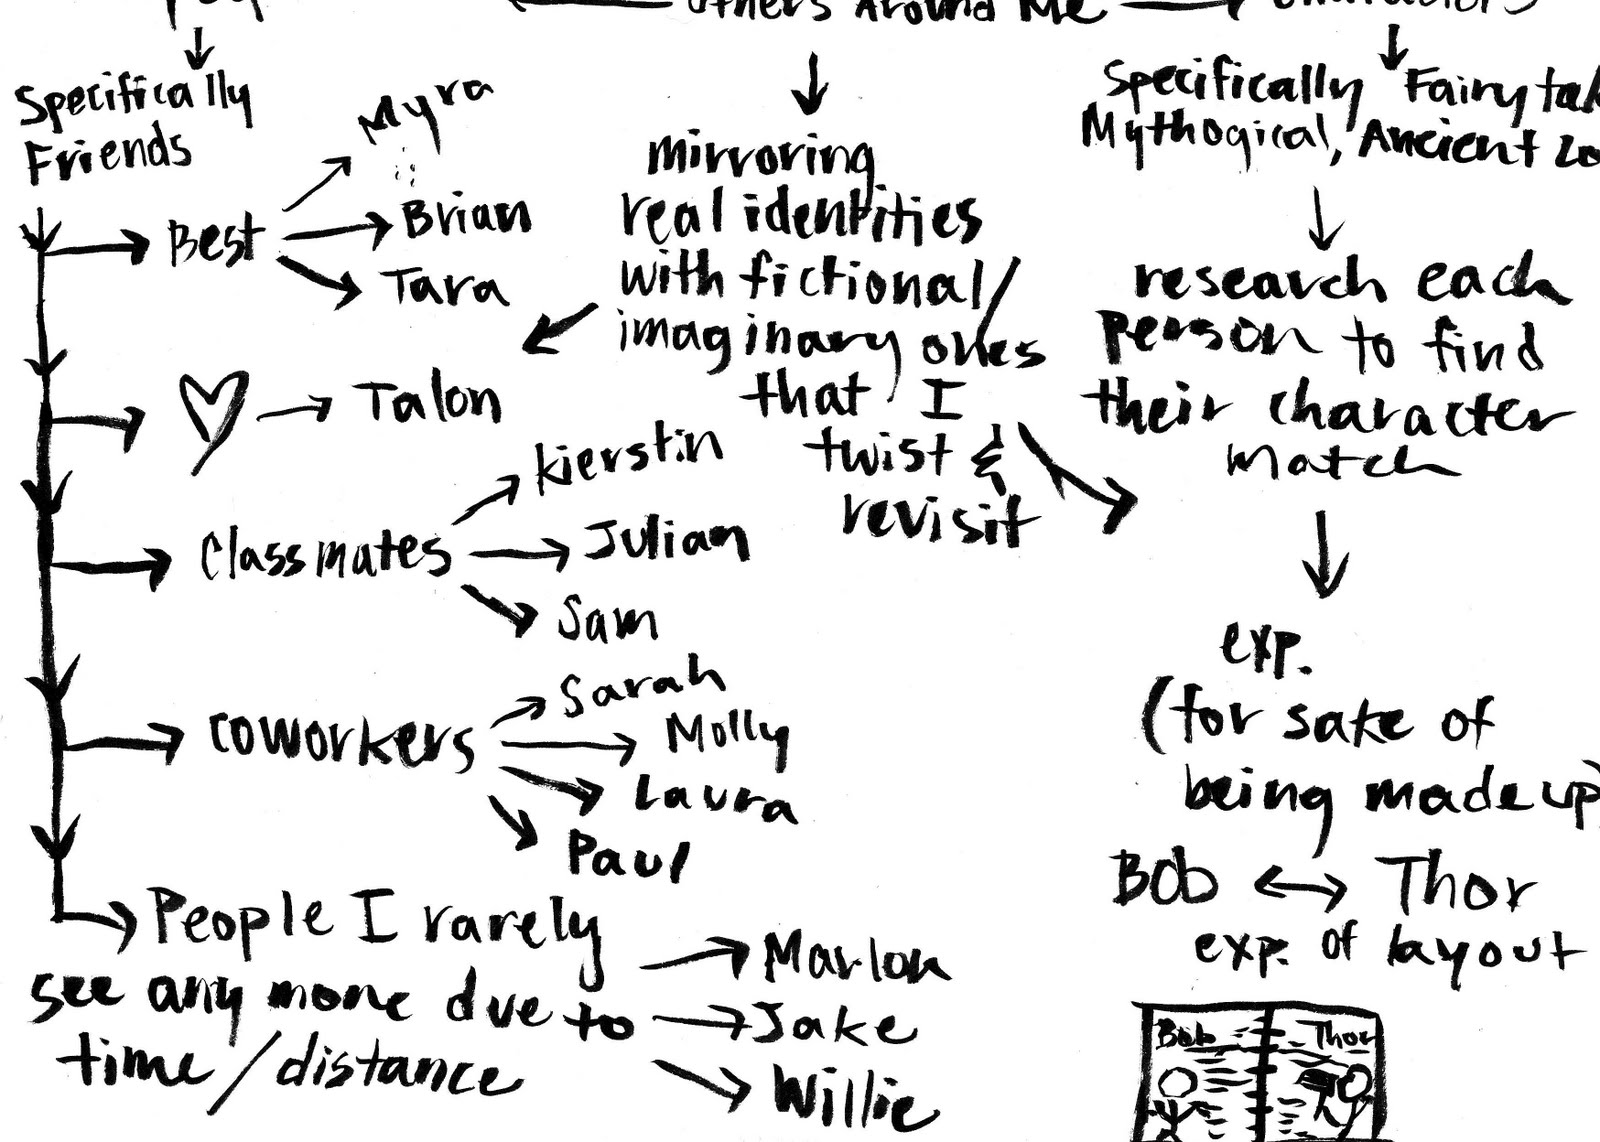 Others Around Me
Specifically
Friends
Best
Myra
Brian
Tara
Talon
Classmates
Kierstin
Julian
Sam
coworkers
Sarah
Molly
Laura
Paul
People I rarely
see any more due to
time/distance
Marlon
Jake
Willie
mirroring
real identities
with fictional/
imaginary ones
that I
twist &
revisit
Specifically Fairytal
Mythogical, Ancient Lo
research each
person to find
their character
match
exp.
(for sake of
being made up)
Bob ↔ Thor
exp. of layout
Bob Thor